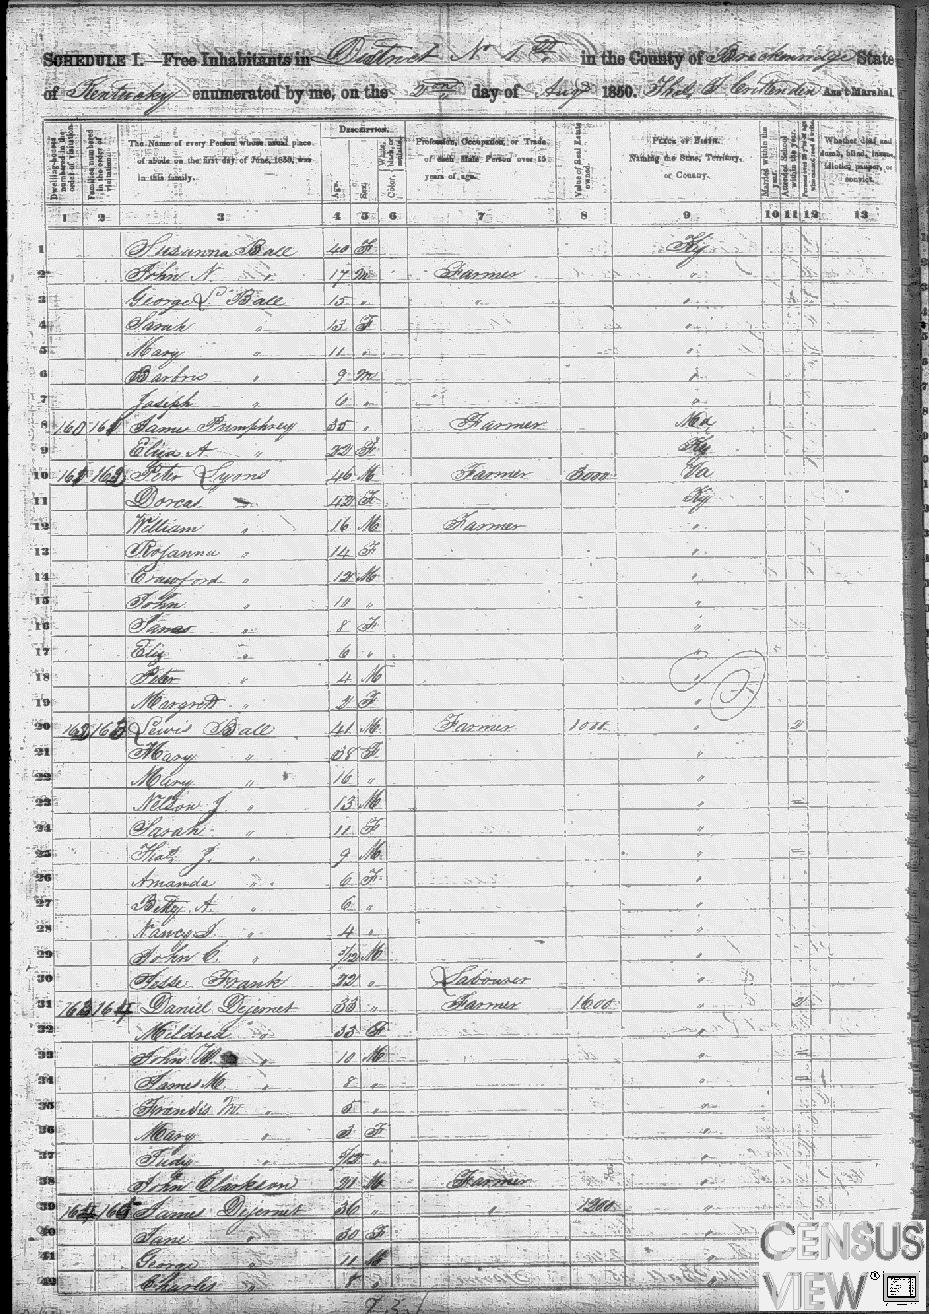 SCHEDULE I. — Free Inhabitants in District No 1st in the County of Breckenridge State
of Kentucky enumerated by me, on the 2nd day of Augs 1850. Thos. J. Crittenden Ass't Marshal.
Dwelling-houses numbered in the order of visitation.
Families numbered in the order of visitation.
The Name of every Person whose usual place of abode on the first day of June, 1850, was in this family.
DESCRIPTION.
Age.
Sex.
Color, White, black, or mulatto.
Profession, Occupation, or Trade of each Male Person over 15 years of age.
Value of Real Estate owned.
PLACE OF BIRTH. Naming the State, Territory, or Country.
Married within the year.
Attended School within the year.
Persons over 20 y'rs of age who cannot read & write.
Whether deaf and dumb, blind, insane, idiotic, pauper, or convict.
1 2 3 4 5 6 7 8 9 10 11 12 13
1 Susanna Ball 40 F Ky
2 John N " 17 M Farmer "
3 George L Ball 15 " " "
4 Sarah " 13 F "
5 Mary " 11 " "
6 " 9 M "
7 Joseph " 6 " "
8 James Pumphrey 35 " Farmer Md
9 Eliza A " 22 F Ky
10 Peter Lyons 46 M Farmer 3000 Va
11 Dorcas " 42 F Ky
12 William " 16 M Farmer "
13 Rosanna " 14 F "
14 Crawford " 12 M "
15 John " 10 " "
16 " 8 F "
17 Eliz " 6 " "
18 Peter " 4 M "
19 Margrett " 2 F "
20 162 163 Lewis Ball 41 M Farmer 1000 "
21 Mary " 38 F "
22 Mary " 16 " "
23 Nelson J " 13 M "
24 Sarah " 11 F "
25 Thos J. " 9 M "
26 Amanda " 6 F "
27 Betty A. " 6 " "
28 Nancy J. " 4 " "
29 John C. " /12 M "
30 Jesse Frank 22 " Labourer "
31 163 164 Daniel Dejernet 33 " Farmer 1600 "
32 Mildred " 33 F "
33 John W. " 10 M "
34 James M. " 8 " "
35 Francis M. " 5 " "
36 Mary " 3 F "
37 Judy " /12 " "
38 John Clarkson 21 M Farmer "
39 164 165 James Dejernet 36 " " 1200 "
40 Jane " 30 F "
41 George " 11 M "
42 Charles " 8 " "
CENSUS
VIEW®